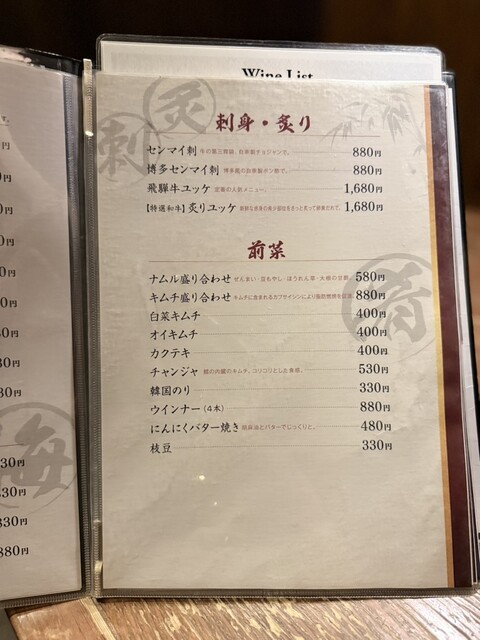 Wine List
刺身・炙り
センマイ刺 牛の第三胃袋。自家製チョジャンで。 880円
博多センマイ刺 博多風の自家製ポン酢で。 880円
飛騨牛ユッケ 定番の人気メニュー。 1,680円
【特選和牛】炙りユッケ 1,680円
前菜
ナムル盛り合わせ ぜんまい・豆もやし・ほうれん草・大根の甘酢。 580円
キムチ盛り合わせ キムチに含まれるカプサイシンにより脂肪燃焼を促進 880円
白菜キムチ 400円
オイキムチ 400円
カクテキ 400円
チャンジャ 鱈の内臓のキムチ。コリコリとした食感。 530円
韓国のり 330円
ウインナー（4本） 880円
にんにくバター焼き 胡麻油とバターでじっくりと。 480円
枝豆 330円